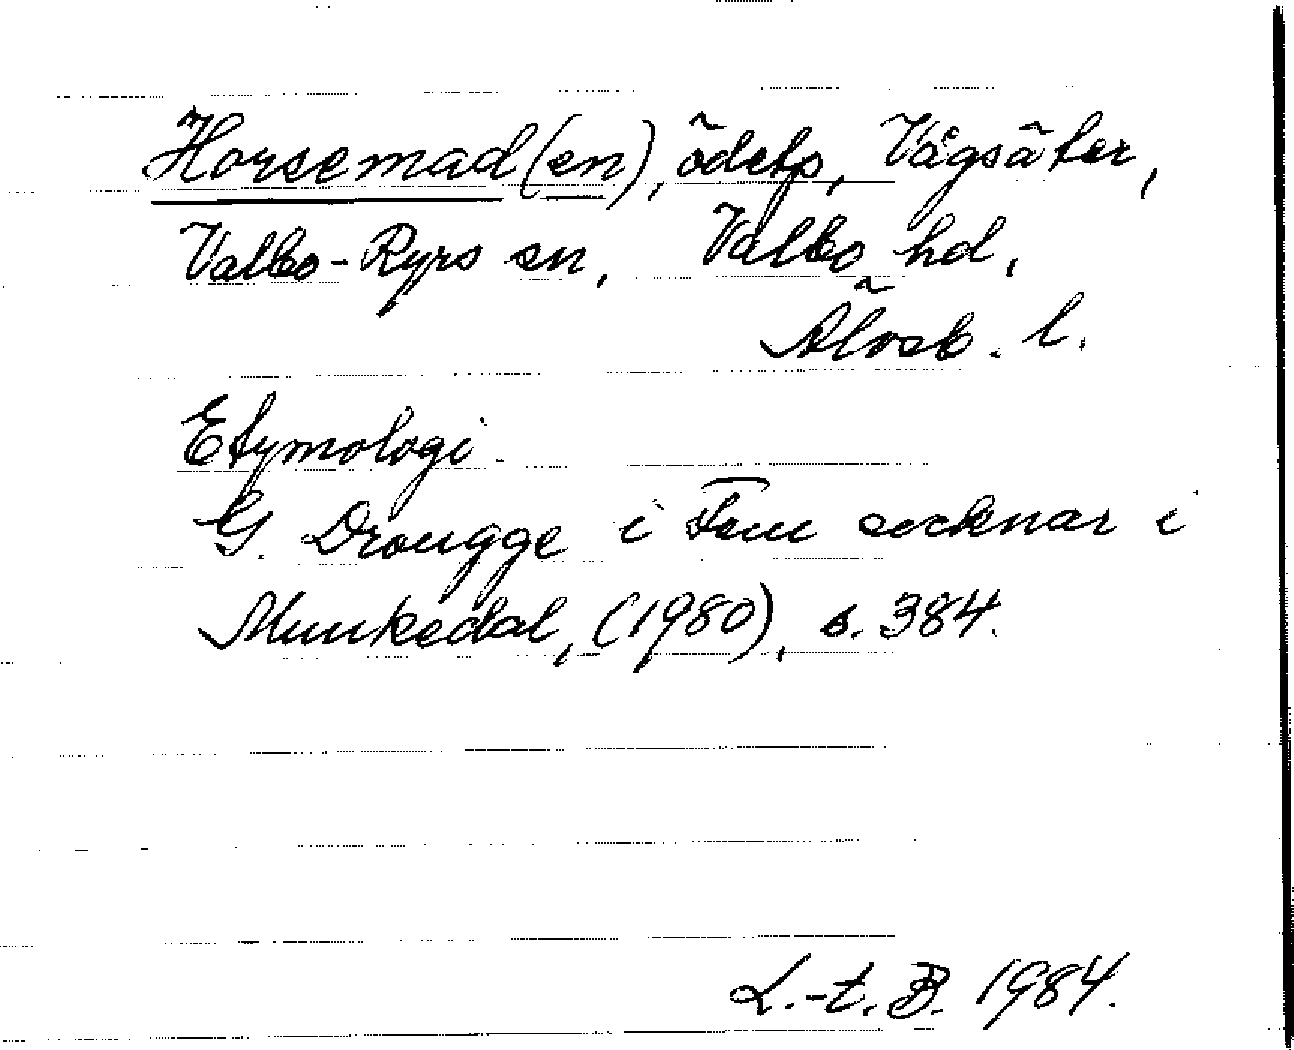 Horsemad(en), ödetp, Vågsäter,
Valbo-Ryrs sn, Valbo hd,
Älvsb. l.
Etymologi.
G. Drougge i Fem socknar i
Munkedal, (1980), s. 384.
L.-t. B. 1984.